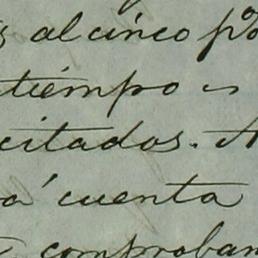 al cinco p%
tiempo
citados.
á cuenta
comproban